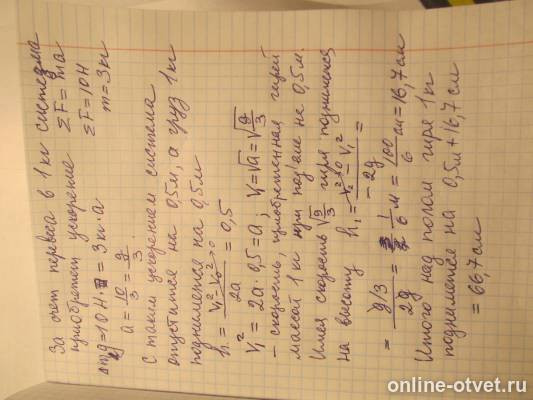 За счет перевеса в 1кг система
приобретет ускорение ΣF = ma
Δmg = 10Н = 3кг · a ΣF = 10Н
a = 10/3 = g/3 m = 3кг
С таким ускорением система
опустится на 0,5м, а груз 1кг
поднимется на 0,5м
h = (V₁² - V₀²→0)/2a = 0,5
V₁² = 2a · 0,5 = a; V₁ = √a = √(g/3)
- скорость, приобретенная гирей
массой 1кг при подъеме на 0,5м.
Имея скорость √(g/3) гиря поднимется
на высоту h₁ = (V₂²→0 - V₁²)/(-2g) =
= (g/3)/2g = 1/6 м = 100/6 см = 16,7см
Итого над полом гиря 1кг
поднимется на 0,5м + 16,7см
= 66,7см
online-otvet.ru